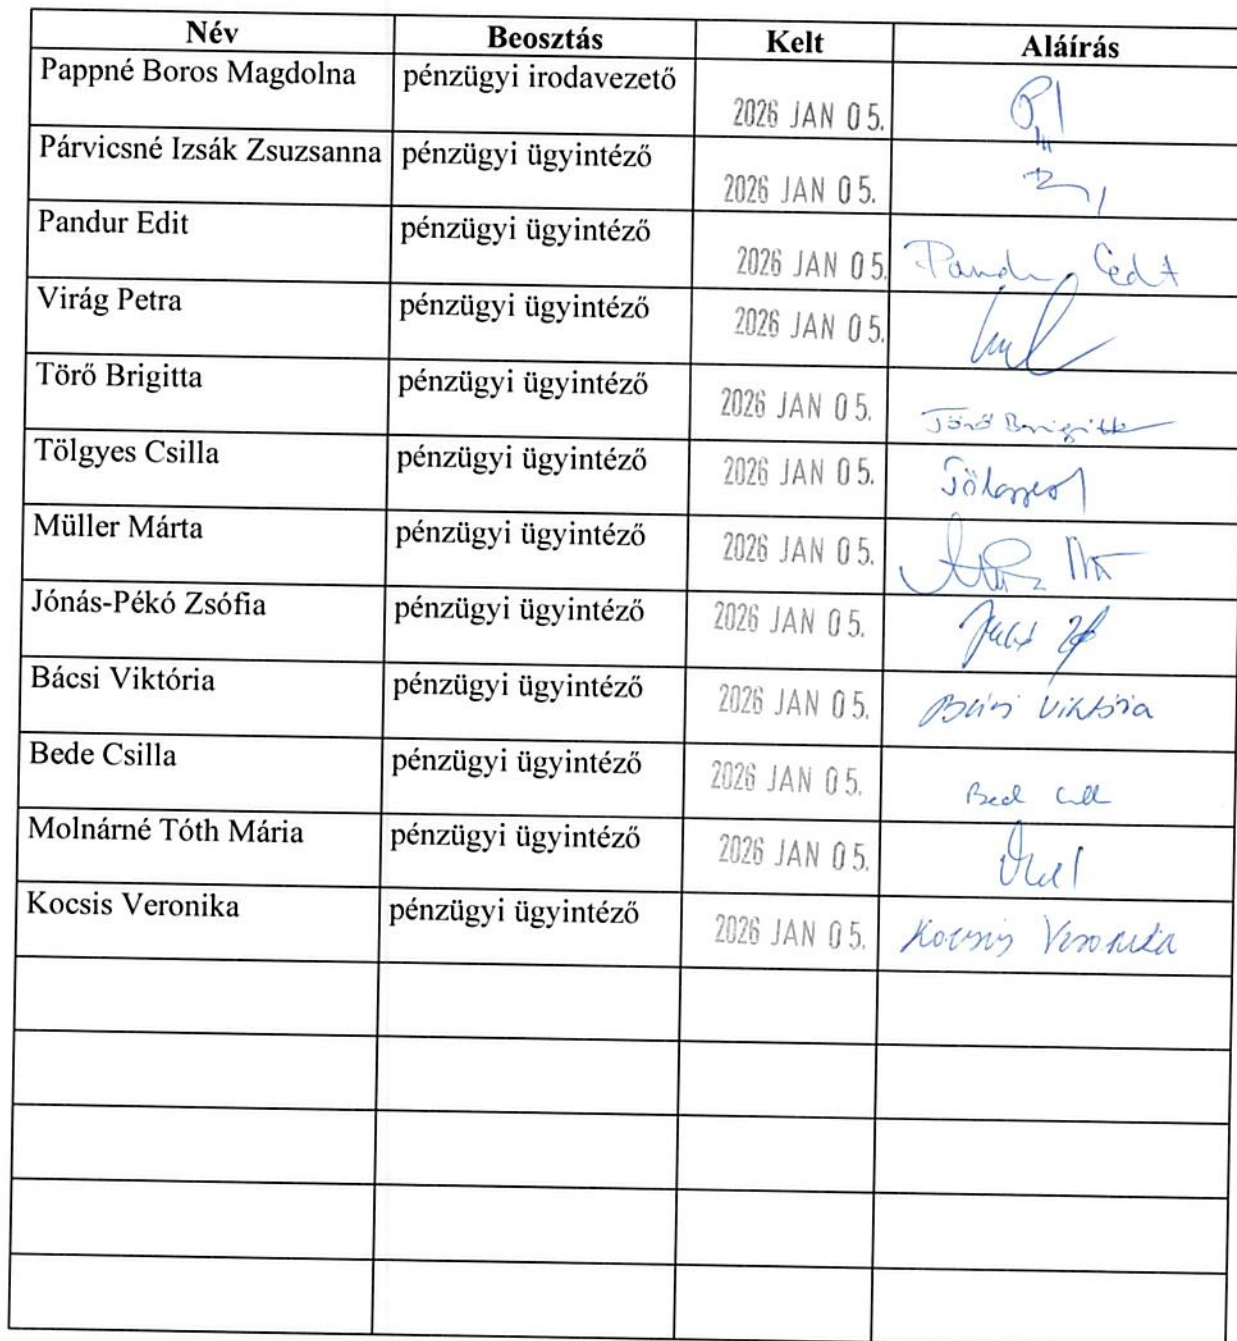 Név Beosztás Kelt Aláírás
Pappné Boros Magdolna pénzügyi irodavezető 2026 JAN 05.
Párvicsné Izsák Zsuzsanna pénzügyi ügyintéző 2026 JAN 05.
Pandur Edit pénzügyi ügyintéző 2026 JAN 05.
Virág Petra pénzügyi ügyintéző 2026 JAN 05.
Törő Brigitta pénzügyi ügyintéző 2026 JAN 05. Törő Brigitta
Tölgyes Csilla pénzügyi ügyintéző 2026 JAN 05.
Müller Márta pénzügyi ügyintéző 2026 JAN 05.
Jónás-Pékó Zsófia pénzügyi ügyintéző 2026 JAN 05.
Bácsi Viktória pénzügyi ügyintéző 2026 JAN 05. Bácsi Viktória
Bede Csilla pénzügyi ügyintéző 2026 JAN 05.
Molnárné Tóth Mária pénzügyi ügyintéző 2026 JAN 05.
Kocsis Veronika pénzügyi ügyintéző 2026 JAN 05. Kocsis Veronika